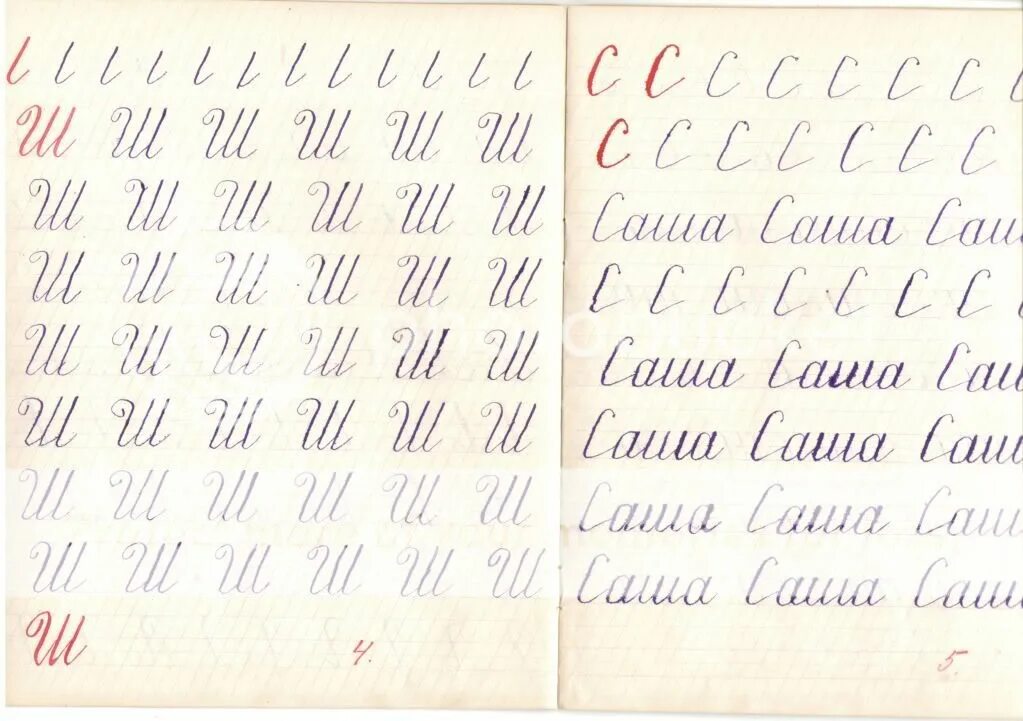 Ш Ш Ш Ш Ш Ш
Ш Ш Ш Ш Ш Ш
Ш Ш Ш Ш Ш Ш
Ш Ш Ш Ш Ш Ш
Ш Ш Ш Ш Ш Ш
Ш Ш Ш Ш Ш Ш
Ш Ш Ш Ш Ш Ш
Ш 4.
С С С С С С С
С С С С С С С
Саша Саша Саш
С С С С С С С
Саша Саша Саш
Саша Саша Саш
Саша Саша Саш
Саша Саша Саш
5.